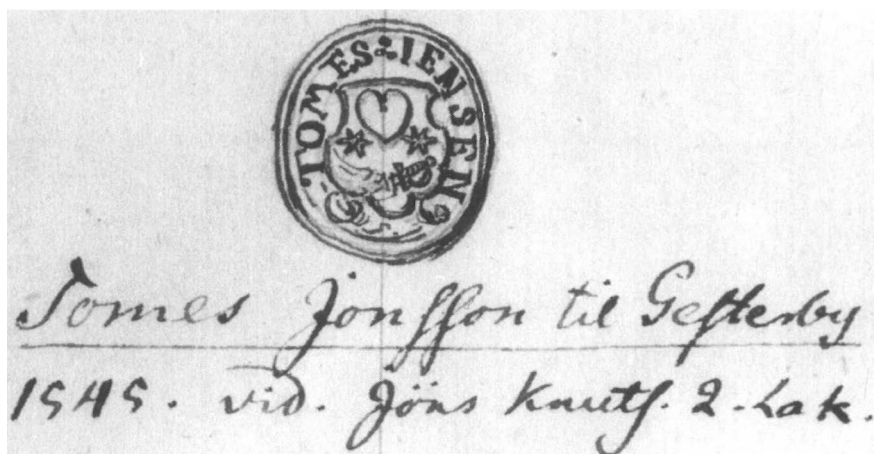 TOMES IENSEN
Tomes Jonsson til Gesterby
1545. vid. Jöns Knuts. 2. Lak.